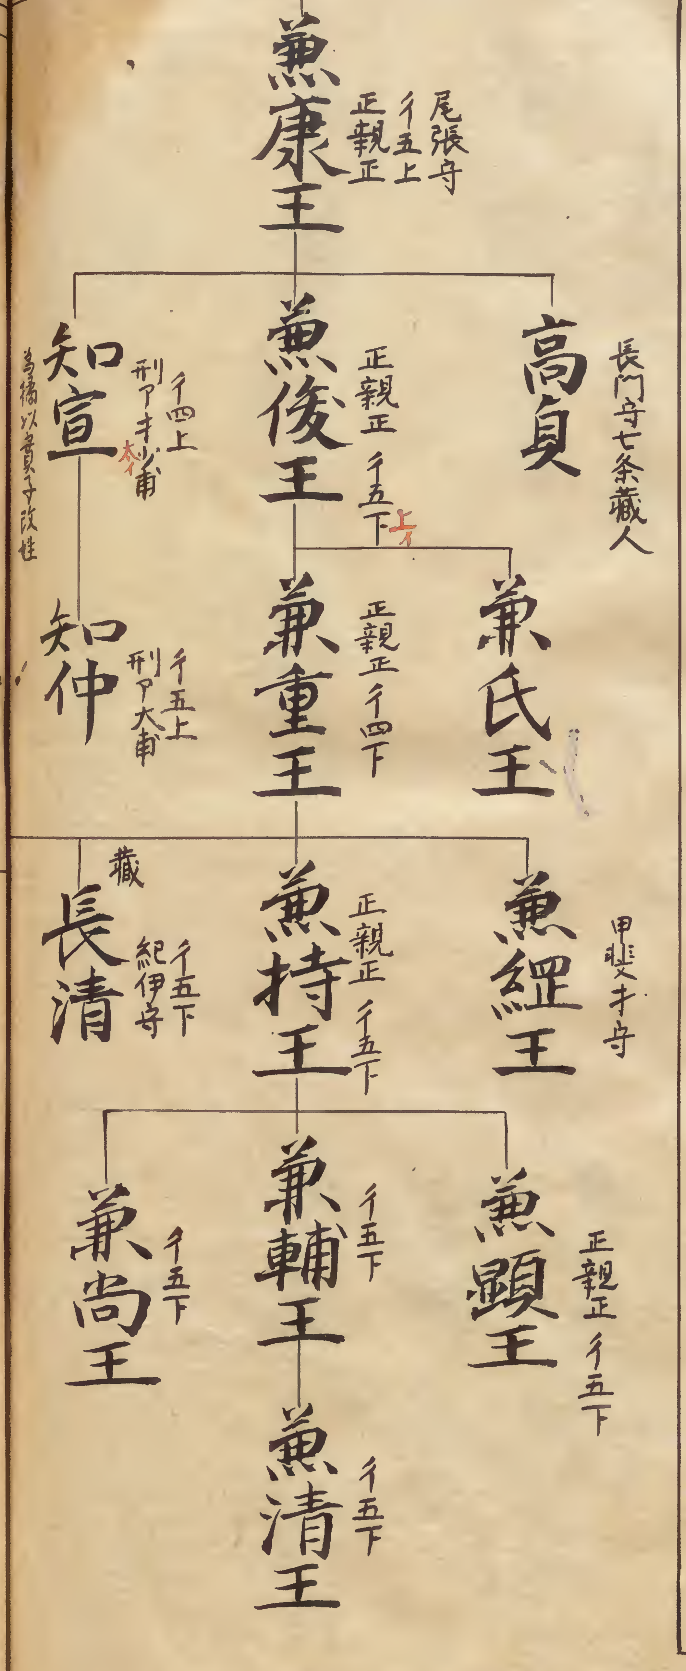 兼康王
尾張守
彳五上
正親正
高貞
長門守七条藏人
兼俊王
正親正 彳五下
上イ
知宣
彳四上
刑ア才少甫
大イ
以貴子改姓
兼氏王
兼重王
正親正 彳四下
知仲
彳五上
刑ア大甫
兼綱王
甲斐才守
兼持王
正親正 彳五下
長清
藏
彳五下
紀伊守
兼顕王
正親正 彳五下
兼輔王
彳五下
兼尚王
彳五下
兼清王
彳五下